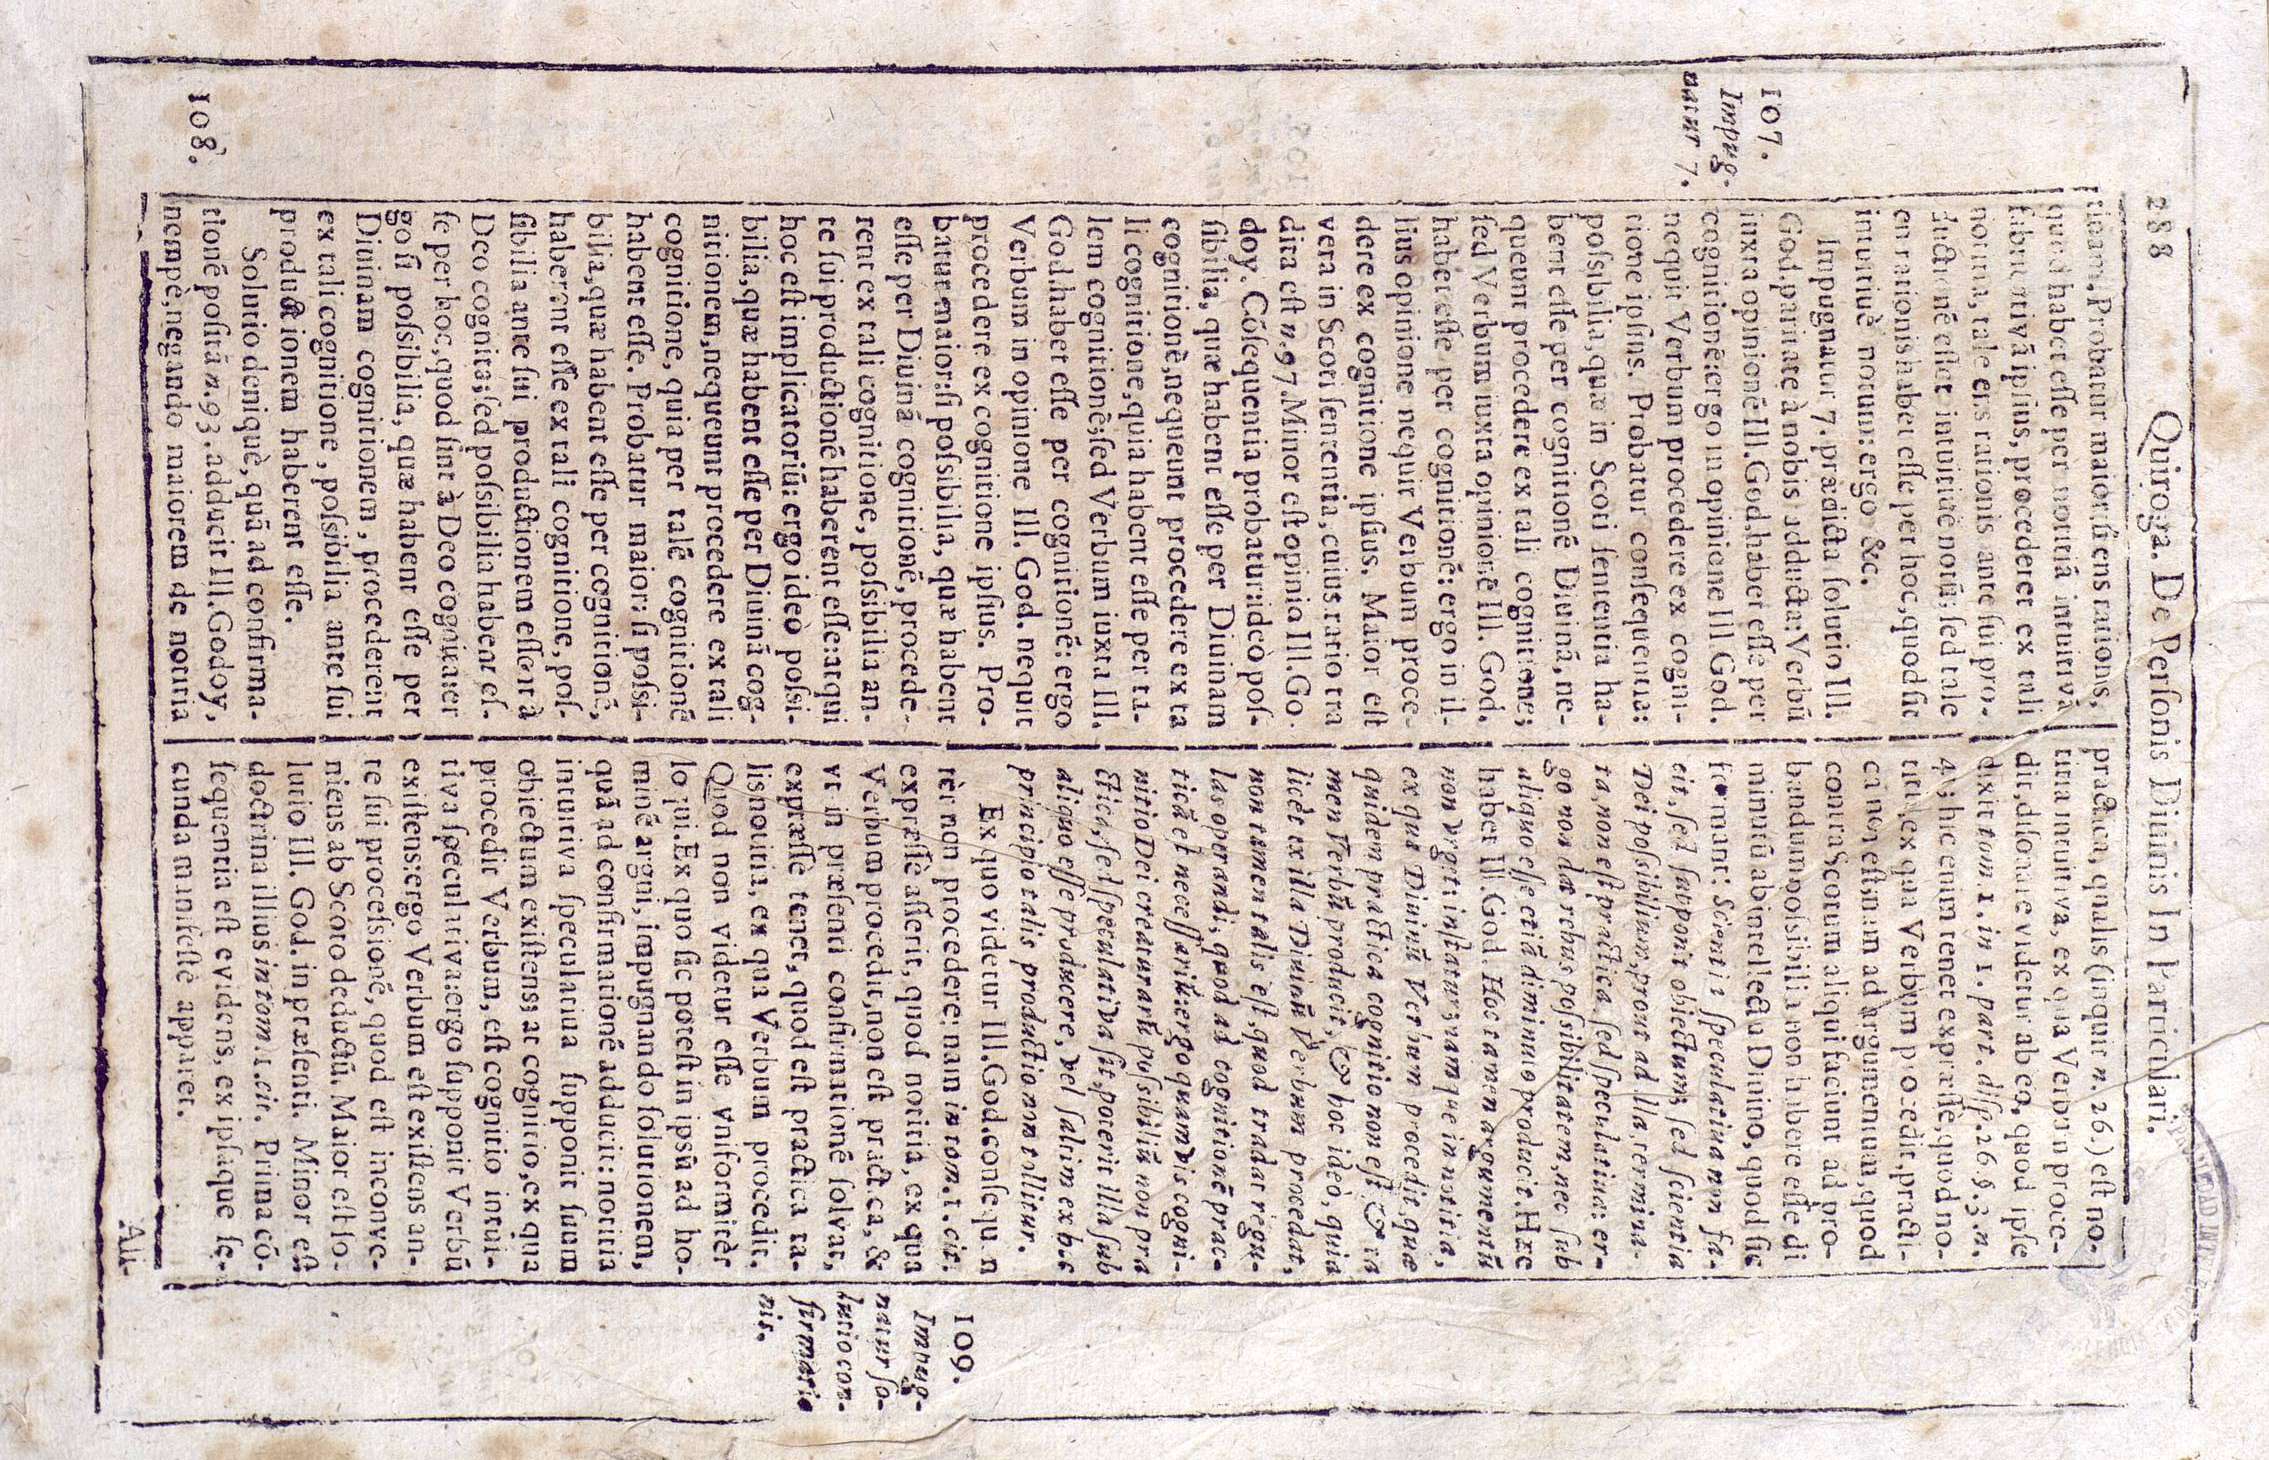 288 Quiroga. De Personis Diuinis In Particulari.
ctioam. Probatur maior: si ens rationis,
quod habet esse per notitiã intuitivã
fabricativã ipsius, procederet ex tali
notitia, tale ens rationis ante sui pro-
ductionẽ esset intuitiuè notũ; sed tale
ens rationis habet esse per hoc, quod sit
intuitiuè notum: ergo &c.
107.
Impug-
natur 7.
Impugnatur 7. prædicta solutio Ill.
God. paritate à nobis adducta: Verbũ
iuxta opinionẽ Ill. God. habet esse per
cognitionẽ: ergo in opinione Ill God.
nequit Verbum procedere ex cogni-
tione ipsius. Probatur consequentia:
possibilia, quæ in Scoti sententia ha-
bent esse per cognitionẽ Diuinã, ne-
queunt procedere ex tali cognitione;
sed Verbum iuxta opinionẽ Ill. God.
habet esse per cognitionẽ: ergo in il-
lius opinione nequit Verbum proce-
dere ex cognitione ipsius. Maior est
vera in Scoti sententia, cuius ratio tra
dita est n. 97. Minor est opinio Ill. Go-
doy. Cõsequentia probatur: ideò pos-
sibilia, quæ habent esse per Diuinam
cognitionẽ, nequeunt procedere ex ta
li cognitione, quia habent esse per ta-
lem cognitionẽ; sed Verbum iuxta Ill.
God. habet esse per cognitionẽ: ergo
Verbum in opinione Ill. God. nequit
procedere ex cognitione ipsius. Pro-
batur maior: si possibilia, quæ habent
esse per Diuinã cognitionẽ, procede-
rent ex tali cognitione, possibilia an-
te sui productionẽ haberent esse: atqui
hoc est implicatoriũ: ergo ideò possi-
bilia, quæ habent esse per Diuinã cog-
nitionem, nequeunt procedere ex tali
cognitione, quia per talẽ cognitionẽ
habent esse. Probatur maior: si possi-
bilia, quæ habent esse per cognitionẽ,
haberant esse ex tali cognitione, pos-
sibilia ante sui productionem essent à
Deo cognita; sed possibilia habent es-
se per hoc, quod sint à Deo cognita: er
go si possibilia, quæ habent esse per
Diuinam cognitionem, procederent
ex tali cognitione, possibilia ante sui
productionem haberent esse.
108.
Solutio deniquè, quã ad confirma-
tionẽ positã n. 93. adducit Ill. Godoy,
nempè, negando maiorem de notitia
practica, qualis (inquit n. 26.) est no-
titia intuitiva, ex qua Verbum proce-
dit, dissonare videtur ab eo, quod ipse
dixit tom. 1. in 1. part. disp. 26 §. 3. n.
; hic enim tenet expræsse, quod no-
titia, ex qua Verbum procedit, practi-
ca non est; nam ad argumentum, quod
contra Scotum aliqui faciunt ad pro-
bandum possibilia non habere esse di
minutũ ab intellectu Diuino, quod sic
formant: Scientia speculatiua non fa-
cit, sed supponit obiectum; sed scientia
Dei possibilium, prout ad illa termina-
ta, non est practica, sed speculatiua: er-
go non dat rebus possibilitatem, nec sub
aliquo esse etiã diminuto producit. Hæc
habet Ill. God. Hoc tamen argumentũ
non vrget: instatur; namque in notitia,
ex qua Diuinũ Verbum procedit, quæ
quidem practica cognitio non est, & ta
men Verbũ producit, & hoc ideò, quia
licèt ex illa Diuinũ Verbum procedat,
non tamen talis est, quod tradat regu-
las operandi, quod ad cognitionẽ prac-
ticã est necessariũ: ergo quamvis cogni-
nitio Dei creaturarũ possibiliũ non pra
ctica, sed speculativa sit, poterit illa sub
aliquo esse producere, vel saltim ex hoc
principio talis productio non tollitur.
109.
Impug-
natur so-
lutio con-
firmatio
nis.
Ex quo videtur Ill. God. consequen
tèr non procedere: nam in tom. 1. cit.
expræssè asserit, quod notitia, ex qua
Verbum procedit, non est practica, &
vt in præsenti confirmationẽ solvat,
expræssè tenet, quod est practica ta-
lis notitia, ex qua Verbum procedit.
Quod non videtur esse vniformitèr
loqui. Ex quo sic potest in ipsũ ad ho-
minẽ argui, impugnando solutionem,
quã ad confirmationẽ adducit: notitia
intuitiva speculatiua supponit suum
obiectum existens: at cognitio, ex qua
procedit Verbum, est cognitio intui-
tiva speculativa: ergo supponit Verbũ
existens: ergo Verbum est existens an-
te sui processionẽ, quod est inconve-
niens ab Scoto deductũ. Maior est so-
lutio Ill. God. in præsenti. Minor est
doctrina illius in tom. 1. cit. Prima cõ-
sequentia est evidens, ex ipsaque se-
cunda manifestè apparet.
Ali-